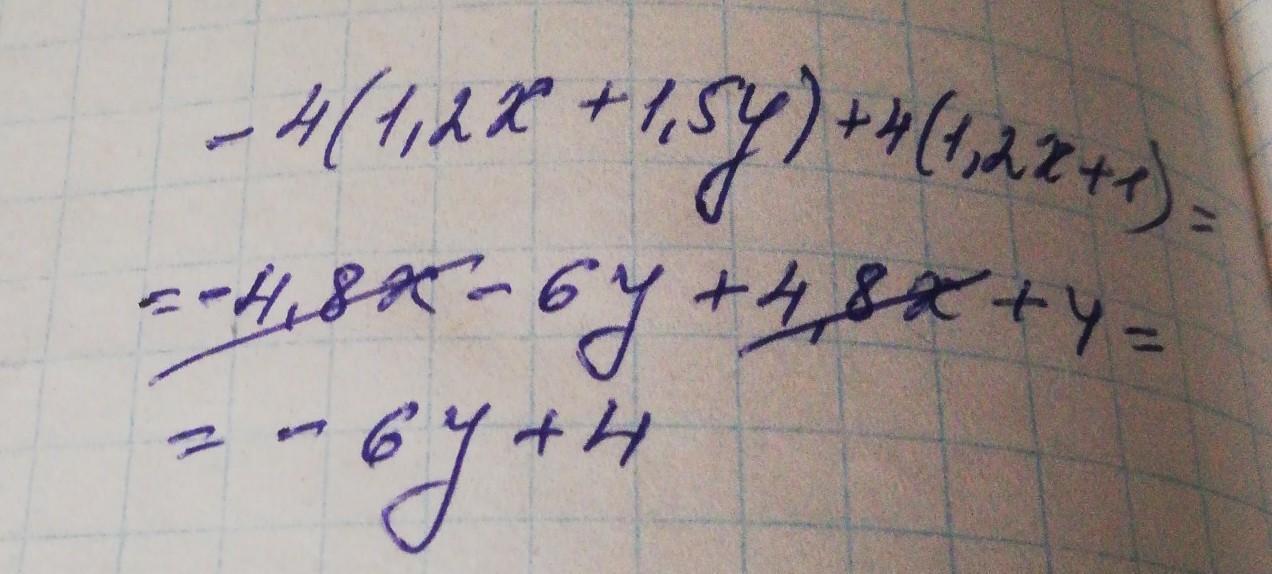 -4(1,2x+1,5y)+4(1,2x+1)=
=-4,8x-6y+4,8x+4=
=-6y+4